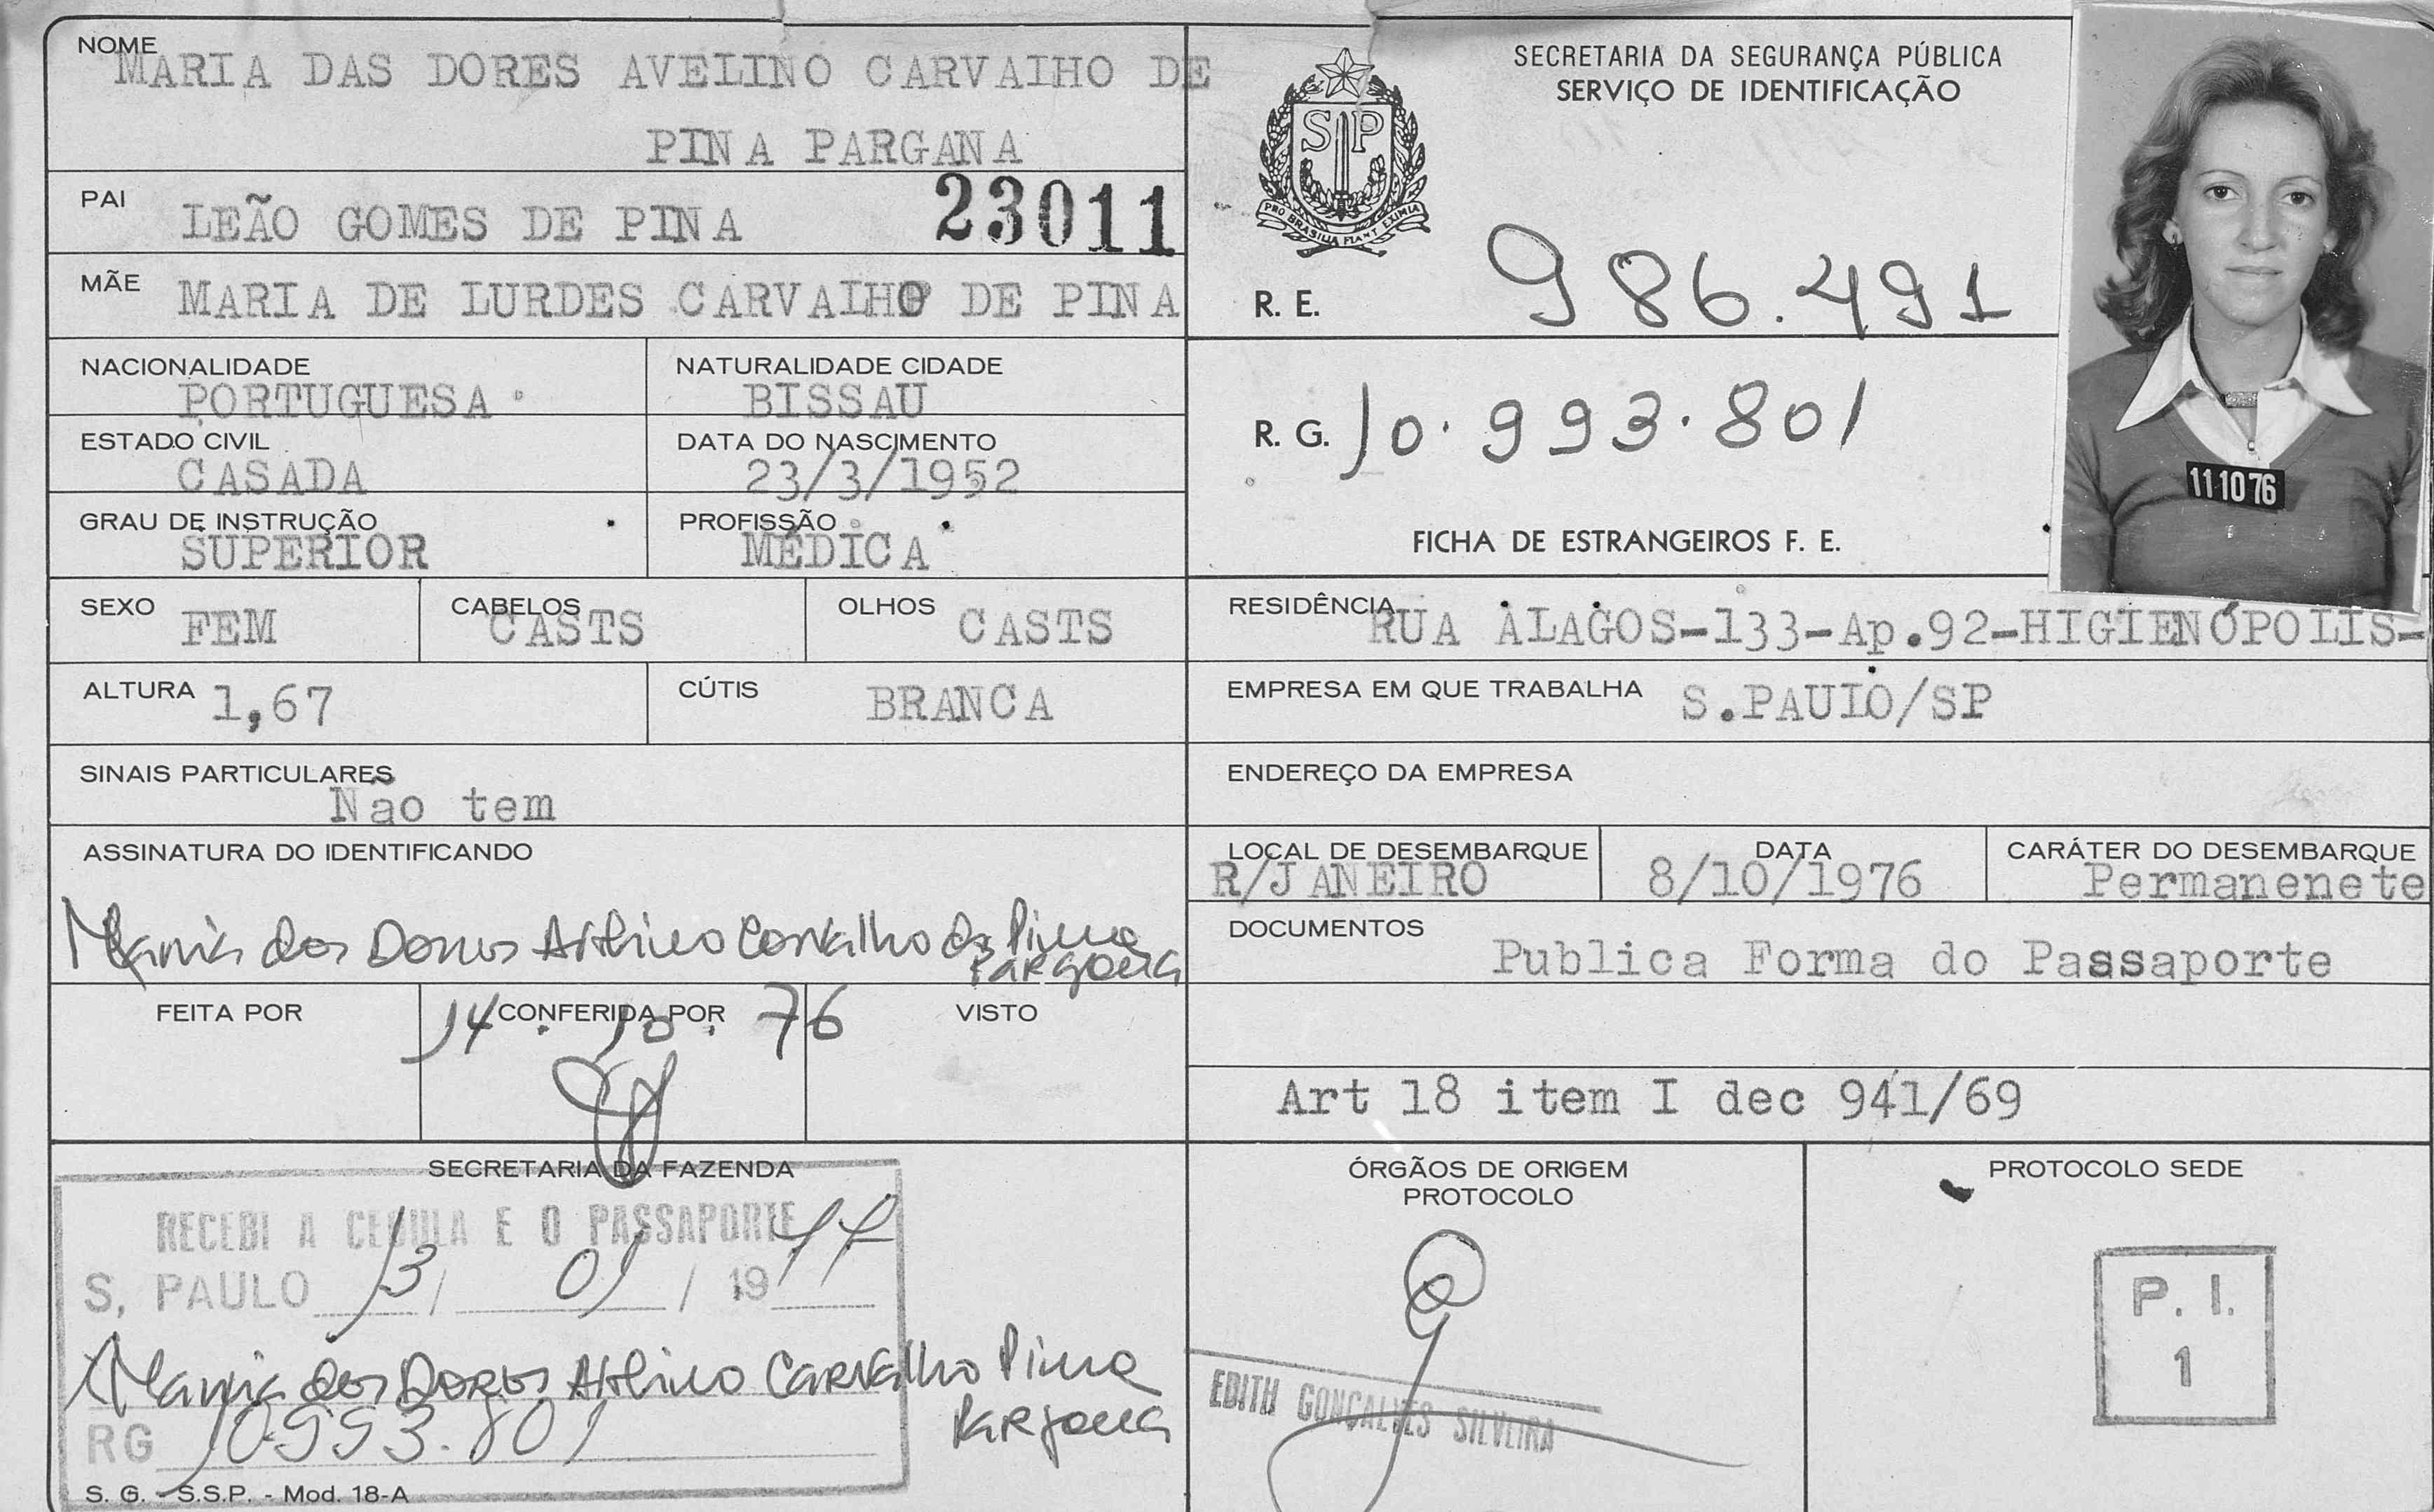 NOME
MARIA DAS DORES AVELINO CARVALHO DE
PINA PARGANA
PAI
LEÃO GOMES DE PINA
23011
MÃE
MARIA DE LURDES CARVALHO DE PINA
NACIONALIDADE
PORTUGUESA
NATURALIDADE CIDADE
BISSAU
ESTADO CIVIL
CASADA
DATA DO NASCIMENTO
23/3/1952
GRAU DE INSTRUÇÃO
SUPERIOR
PROFISSÃO
MÉDICA
SEXO FEM
CABELOS CASTS
OLHOS CASTS
ALTURA 1,67
CÚTIS BRANCA
SINAIS PARTICULARES
Não tem
ASSINATURA DO IDENTIFICANDO
Maria das Dores Avelino Carvalho de Pina
Pargana
FEITA POR
CONFERIDA POR
VISTO
14.10.76
SECRETARIA DA FAZENDA
RECEBI A CEDULA E O PASSAPORTE
S. PAULO 13/ 01 / 1977
Maria das Dores Avelino Carvalho Pina
Pargana
RG 10.993.801
S. G. - S.S.P. - Mod. 18-A
SECRETARIA DA SEGURANÇA PÚBLICA
SERVIÇO DE IDENTIFICAÇÃO
SP
PRO BRASILIA FIANT EXIMIA
R. E. 986.491
R. G. 10.993.801
11 10 76
FICHA DE ESTRANGEIROS F. E.
RESIDÊNCIA RUA ALAGOS-133-Ap.92-HIGIENÓPOLIS-
EMPRESA EM QUE TRABALHA S.PAULO/SP
ENDEREÇO DA EMPRESA
LOCAL DE DESEMBARQUE
R/JANEIRO
DATA
8/10/1976
CARÁTER DO DESEMBARQUE
Permanenete
DOCUMENTOS
Publica Forma do Passaporte
Art 18 item I dec 941/69
ÓRGÃOS DE ORIGEM
PROTOCOLO
EDITH GONÇALVES SILVEIRA
PROTOCOLO SEDE
P. I.
1